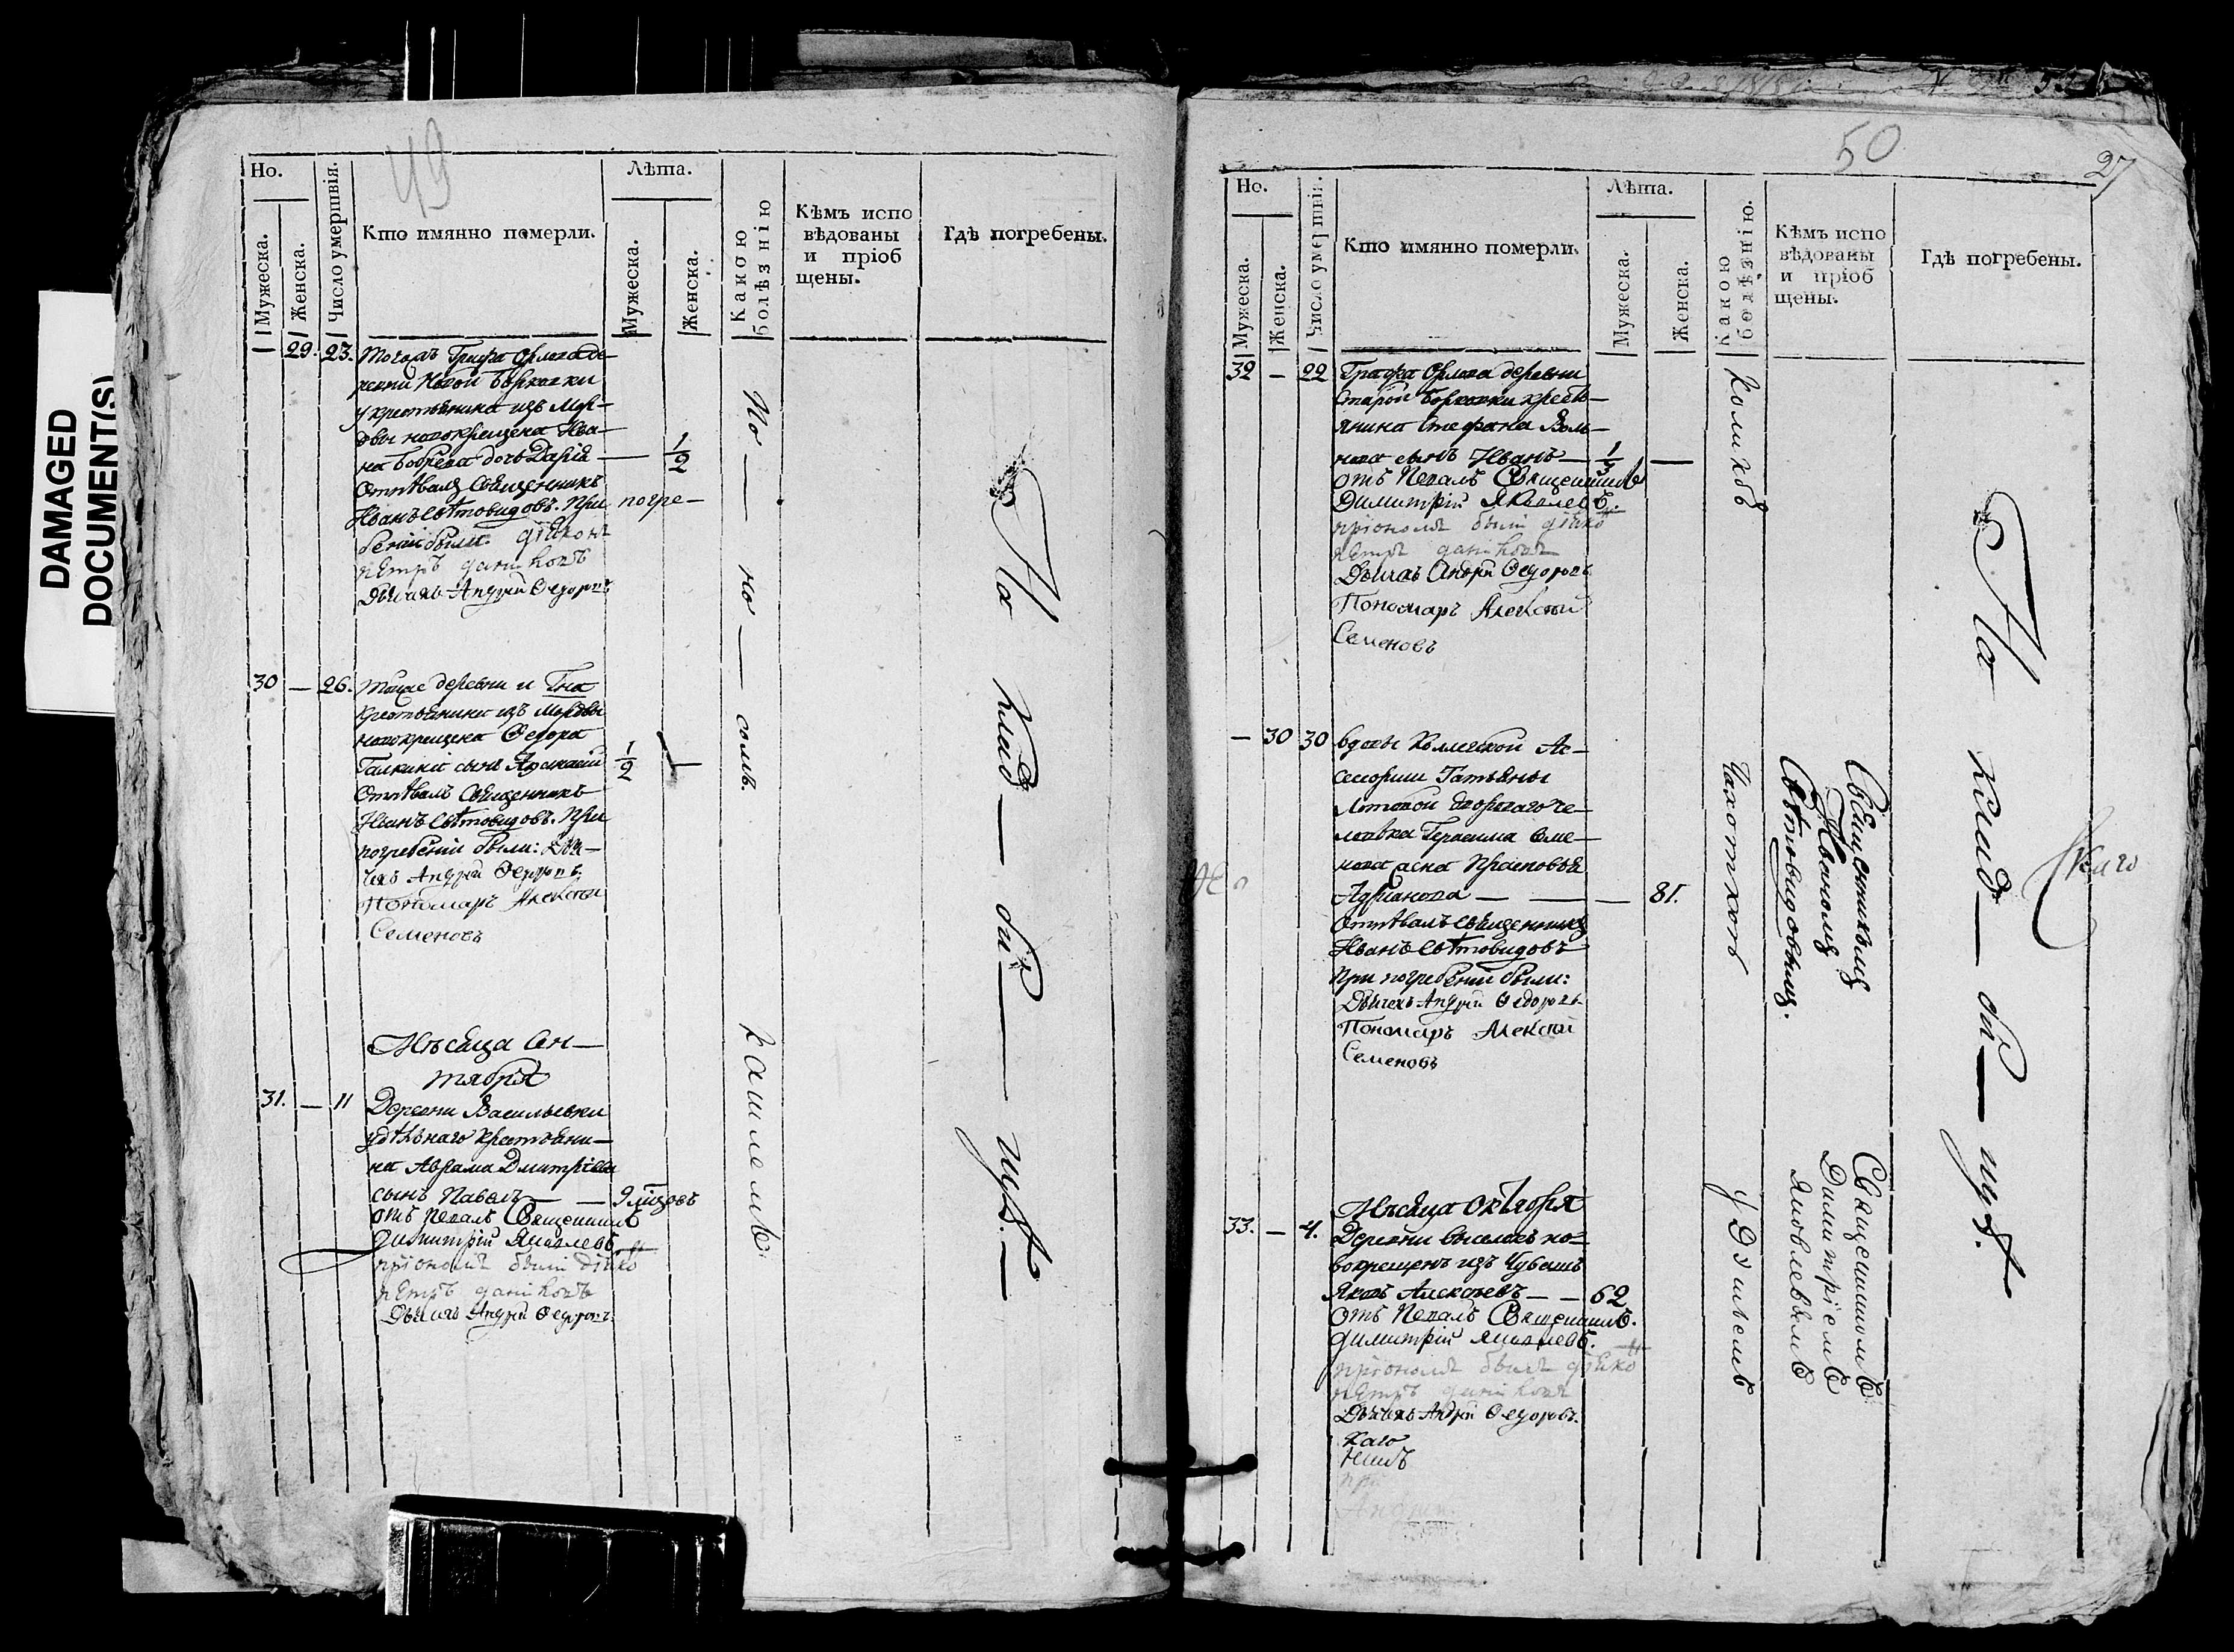 DAMAGED
DOCUMENT(S)
49
Но.
Мужеска.
Женска.
Число умершвія.
Кто имянно померли.
Лѣта.
Мужеска.
Женска.
Какою
болѣзнію
Кѣмъ испо
вѣдованы
и пріоб
щены.
Гдѣ погребены.
— 29. 23. Тогожъ Графа Орлова де–
ревни Новой Борковки
у крестьянина изъ Мор–
двы новокрещена Ива–
на Бобрева дочь Дарія — 1/2
Отпѣвалъ Священникъ
Иванъ Свѣтовидовъ. При погре–
беніи были: діяконъ
петръ
Дьячекъ Андрей Федоровъ
Поносомъ.
30 — 26. Тоиже деревни и Гна
крестьянина изъ Мордвы
новокрещена Федора
Галкина сынъ 1/2 —
Отпѣвалъ Священникъ
Иванъ Свѣтовидовъ. При
погребеніи были: Дья–
чекъ Андрей Федоровъ
Пономаръ Алексей
Семеновъ
Мѣсяца Сен–
тября
31. — 11 Деревни Васильевки
удѣльнаго крестьяни–
на Аврама Дмитріева
сынъ Павелъ — — 9 мцовъ
отъ певалъ Священникъ
Димитрій Яковлевъ
при ономъ были діяко
петръ
Дьячекъ Андрей Федоровъ
кашлемъ
На клад— би— щѣ.—
50
27
Но.
Мужеска.
Женска.
Число умершвій.
Кто имянно померли.
Лѣта.
Мужеска.
Женска.
Какою
болѣзнію.
Кѣмъ испо
вѣдованы
и пріоб
щены.
Гдѣ погребены.
32 — 22 Графа Орлова деревни
Старой Борковки кресть–
янина Стефана
сынъ Иванъ — —
отъ певалъ Священникъ
Димитрій Яковлевъ.
при ономъ были діяко
петръ
Дьячекъ Андрей Федоровъ
Пономаръ Алексей
Семеновъ
коликою
— 30 30 вдовы Колежской Ас–
сесорши Татьяны
двороваго че–
ловѣка Герасима Семе–
нова жена Прасковья
Адрианова — — — 81.
Отпѣвалъ Священникъ
Иванъ Свѣтовидовъ
При погребеніи были:
Дьячекъ Андрей Федоровъ
Пономаръ Алексей
Семеновъ
чахоткою
Священникомъ
Иваномъ
Свѣтовидовымъ.
Мѣсяца Октября
33. — 4. Деревни выселокъ но–
вокрещенъ изъ Чувашъ
Яковъ Алексѣевъ — — 62
Отъ певалъ Священникъ.
Димитрій Яковлевъ.
при ономъ былъ діяко
петръ
Дьячекъ Андрей Федоровъ.
каго
удушьемъ
Священникомъ
Димитріемъ
Яковлевымъ
На клад— би— щѣ.
скаго